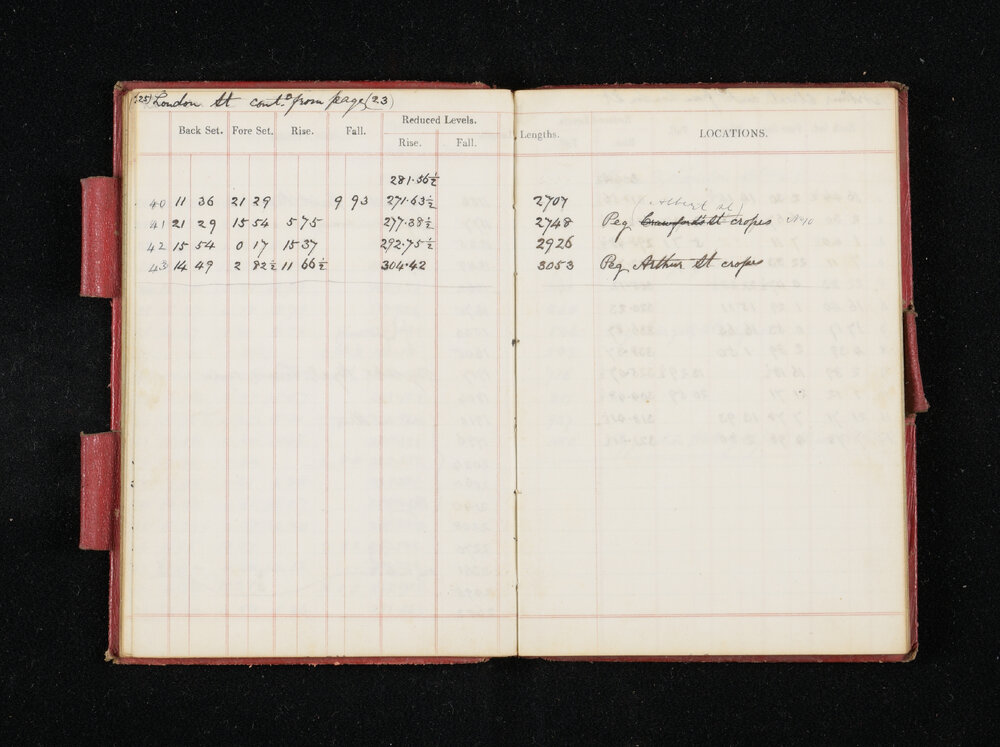 (25) London St contᴰ from page (23)
Back Set. Fore Set. Rise. Fall. Reduced Levels. Lengths. LOCATIONS.
Rise. Fall.
281.56½
40 11 36 21 29 9 93 271.63½ 2707 (Albert St)
41 21 29 15 54 5 75 277.38½ 2748 Peg Crawford St croſses No 10
42 15 54 0 17 15 37 292.75½ 2926
43 14 49 2 82½ 11 66½ 304.42 3053 Peg Arthur St croſses